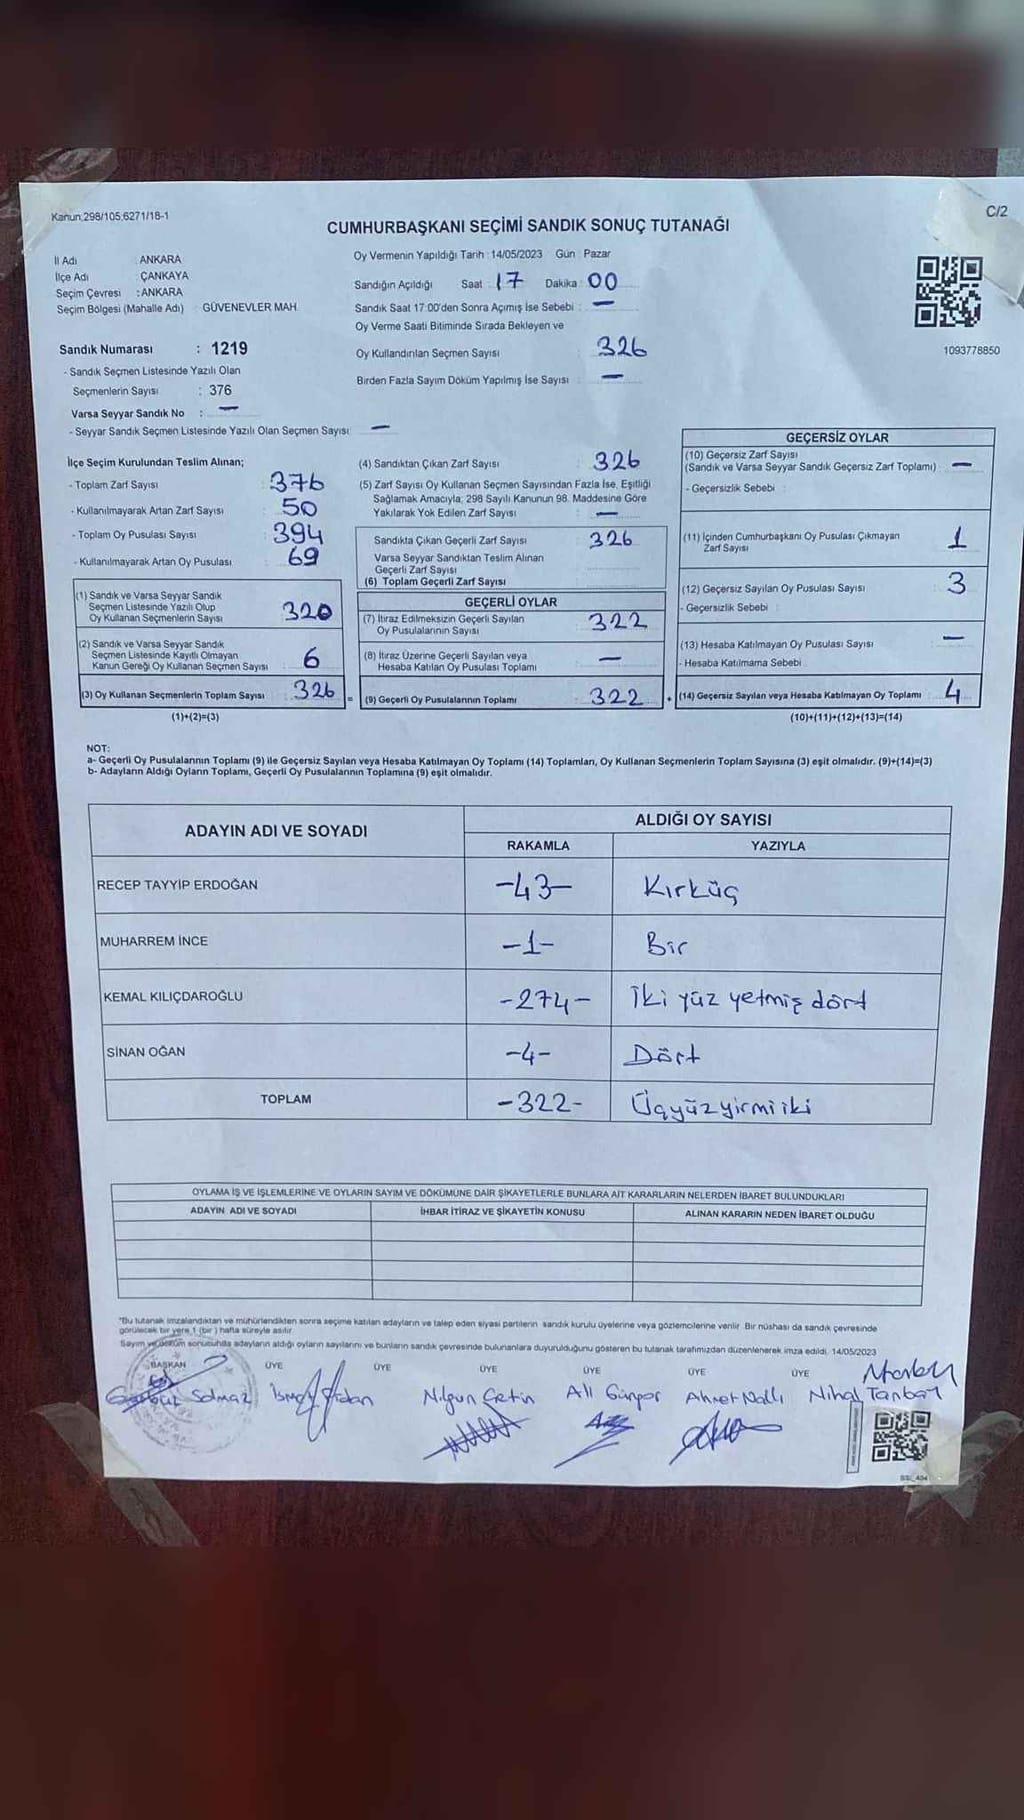 Kanun:298/105;6271/18-1
C/2
CUMHURBAŞKANI SEÇİMİ SANDIK SONUÇ TUTANAĞI
İl Adı : ANKARA
İlçe Adı : ÇANKAYA
Seçim Çevresi : ANKARA
Seçim Bölgesi (Mahalle Adı) : GÜVENEVLER MAH.
Oy Vermenin Yapıldığı Tarih : 14/05/2023 Gün : Pazar
Sandığın Açıldığı Saat : 17 Dakika : 00
Sandık Saat 17:00'den Sonra Açımış İse Sebebi : —
Oy Verme Saati Bitiminde Sırada Bekleyen ve
Oy Kullandırılan Seçmen Sayısı : 326
Birden Fazla Sayım Döküm Yapılmış İse Sayısı : —
1093778850
Sandık Numarası : 1219
- Sandık Seçmen Listesinde Yazılı Olan
Seçmenlerin Sayısı : 376
Varsa Seyyar Sandık No : —
- Seyyar Sandık Seçmen Listesinde Yazılı Olan Seçmen Sayısı: —
İlçe Seçim Kurulundan Teslim Alınan;
- Toplam Zarf Sayısı : 376
- Kullanılmayarak Artan Zarf Sayısı : 50
- Toplam Oy Pusulası Sayısı : 394
- Kullanılmayarak Artan Oy Pusulası : 69
(1) Sandık ve Varsa Seyyar Sandık
Seçmen Listesinde Yazılı Olup
Oy Kullanan Seçmenlerin Sayısı : 320
(2) Sandık ve Varsa Seyyar Sandık
Seçmen Listesinde Kayıtlı Olmayan
Kanun Gereği Oy Kullanan Seçmen Sayısı : 6
(3) Oy Kullanan Seçmenlerin Toplam Sayısı : 326
(1)+(2)=(3)
(4) Sandıktan Çıkan Zarf Sayısı : 326
(5) Zarf Sayısı Oy Kullanan Seçmen Sayısından Fazla İse, Eşitliği
Sağlamak Amacıyla; 298 Sayılı Kanunun 98. Maddesine Göre
Yakılarak Yok Edilen Zarf Sayısı : —
Sandıkta Çıkan Geçerli Zarf Sayısı : 326
Varsa Seyyar Sandıktan Teslim Alınan
Geçerli Zarf Sayısı
(6) Toplam Geçerli Zarf Sayısı
GEÇERLİ OYLAR
(7) İtiraz Edilmeksizin Geçerli Sayılan
Oy Pusulalarının Sayısı : 322
(8) İtiraz Üzerine Geçerli Sayılan veya
Hesaba Katılan Oy Pusulası Toplamı : —
= (9) Geçerli Oy Pusulalarının Toplamı : 322 +
GEÇERSİZ OYLAR
(10) Geçersiz Zarf Sayısı
(Sandık ve Varsa Seyyar Sandık Geçersiz Zarf Toplamı) : —
- Geçersizlik Sebebi :
(11) İçinden Cumhurbaşkanı Oy Pusulası Çıkmayan
Zarf Sayısı : 1
(12) Geçersiz Sayılan Oy Pusulası Sayısı : 3
- Geçersizlik Sebebi :
(13) Hesaba Katılmayan Oy Pusulası Sayısı : —
- Hesaba Katılmama Sebebi :
(14) Geçersiz Sayılan veya Hesaba Katılmayan Oy Toplamı : 4
(10)+(11)+(12)+(13)=(14)
NOT:
a- Geçerli Oy Pusulalarının Toplamı (9) ile Geçersiz Sayılan veya Hesaba Katılmayan Oy Toplamı (14) Toplamları, Oy Kullanan Seçmenlerin Toplam Sayısına (3) eşit olmalıdır. (9)+(14)=(3)
b- Adayların Aldığı Oyların Toplamı, Geçerli Oy Pusulalarının Toplamına (9) eşit olmalıdır.
ADAYIN ADI VE SOYADI
ALDIĞI OY SAYISI
RAKAMLA YAZIYLA
RECEP TAYYİP ERDOĞAN -43- Kırküç
MUHARREM İNCE -1- Bir
KEMAL KILIÇDAROĞLU -274- İki yüz yetmiş dört
SİNAN OĞAN -4- Dört
TOPLAM -322- Üçyüzyirmiiki
OYLAMA İŞ VE İŞLEMLERİNE VE OYLARIN SAYIM VE DÖKÜMÜNE DAİR ŞİKAYETLERLE BUNLARA AİT KARARLARIN NELERDEN İBARET BULUNDUKLARI
ADAYIN ADI VE SOYADI İHBAR İTİRAZ VE ŞİKAYETİN KONUSU ALINAN KARARIN NEDEN İBARET OLDUĞU
*Bu tutanak imzalandıktan ve mühürlendikten sonra seçime katılan adayların ve talep eden siyasi partilerin sandık kurulu üyelerine veya gözlemcilerine verilir. Bir nüshası da sandık çevresinde
görülecek bir yere 1 (bir) hafta süreyle asılır.
Sayım ve döküm sonucunda adayların aldığı oyların sayılarını ve bunların sandık çevresinde bulunanlara duyurulduğunu gösteren bu tutanak tarafımızdan düzenlenerek imza edildi. 14/05/2023
BAŞKAN ÜYE ÜYE ÜYE ÜYE ÜYE ÜYE
Solmaz Nilgün Çetin Ali Günpar Ahmet Nallı Nihal Tanbay